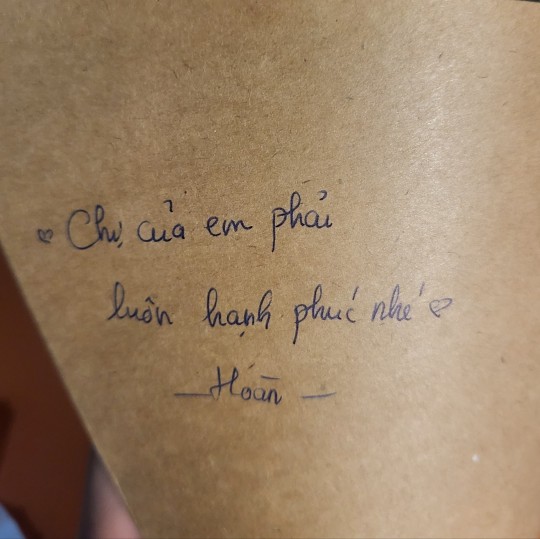 ♡ Chị của em phải
luôn hạnh phúc nhé ♡
— Hoàn —